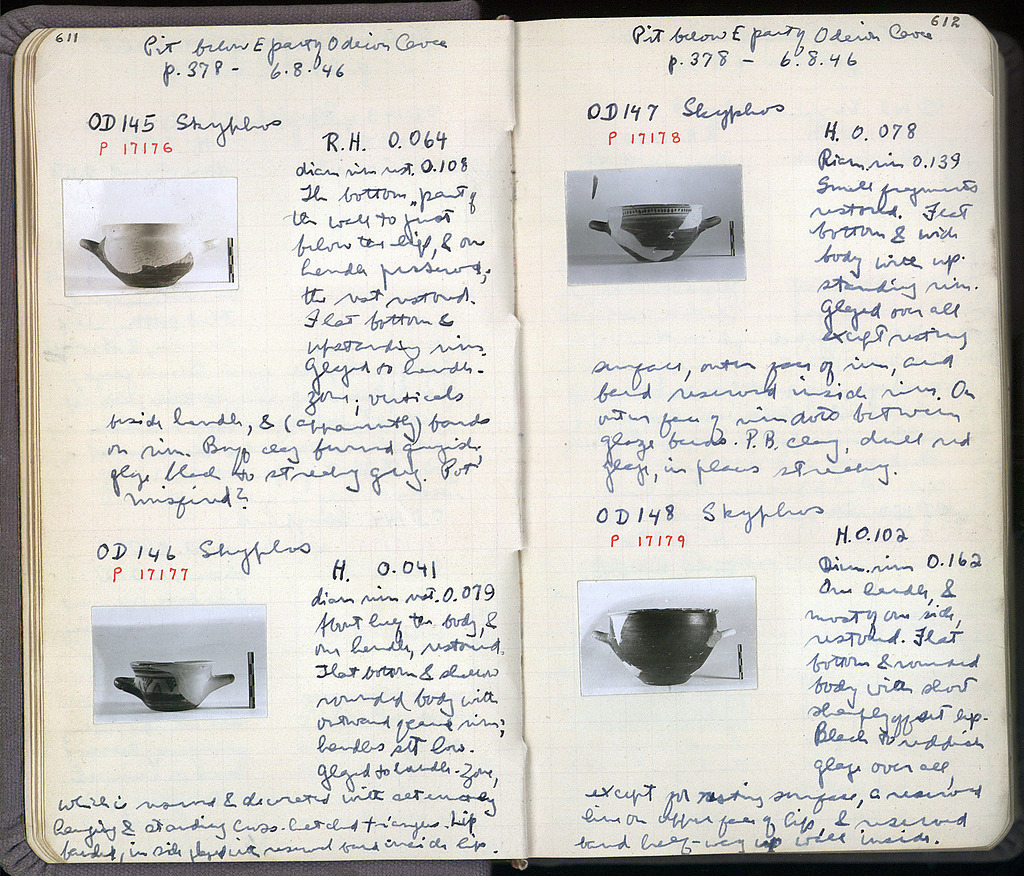 611
Pit below E party Odeion Cavea
p. 378 - 6.8.46
OD 145 Skyphos
P 17176
R.H. 0.064
diam rim rest. 0.108
The bottom, part of
the wall to just
below the lip, & one
handle preserved;
the rest restored.
Flat bottom &
upstanding rim.
Glazed to handle-
zone; verticals
beside handles, & (apparently) bands
on rim. Buff clay burned grayish;
glaze black to streaky gray. Pot
misfired?
OD 146 Skyphos
P 17177
H. 0.041
diam rim rest. 0.079
About half the body, &
one handle, restored.
Flat bottom & shallow
rounded body with
outward flaring rim;
handles set low.
Glazed to handle-zone,
which is reserved & decorated with alternately
hanging & standing cross-hatched triangles. Lip
banded, inside glazed with reserved band inside lip.
612
Pit below E party Odeion Cavea
p. 378 - 6.8.46
OD 147 Skyphos
P 17178
H. 0.078
Diam. rim 0.139
Small fragments
restored. Flat
bottom & wide
body with up-
standing rim.
Glazed over all
except resting
surface, outer face of rim, and
band reserved inside rim. On
outer face of rim dots between
glaze bands. P.B. clay, dull red
glaze, in places streaky.
OD 148 Skyphos
P 17179
H. 0.102
Diam. rim 0.162
One handle, &
most of one side,
restored. Flat
bottom & rounded
body with short
sharply offset lip.
Black to reddish
glaze over all,
except for resting surface, a reserved
line on upper face of lip, & reserved
band half-way up wall inside.